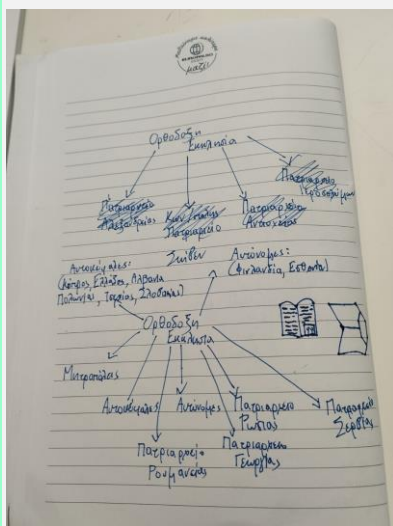 Ορθοδοξη
Εκκλησία
Πατριαρχείο
Ιεροσολύμων
Πατριαρχείο
Αλεξανδρείας
Κων/πολης
Πατριαρχείο
Πατριαρχείο
Αντιοχείας
Αυτοκέφαλες:
(Κύπρος, Ελλάδος, Αλβανία
Πολωνίας, Τσεχίας, Σλοβακίας)
Αυτόνομες:
(Φινλανδία, Εσθονία)
Ορθοδοξη
Εκκλησια
Μητροπόλεις
Αυτοκέφαλες
Αυτόνομες
Πατριαρχειο
Ρωσίας
Πατριαρχειο
Σερβίας
Πατριαρχείο
Ρουμανίας
Πατριαρχειο
Γεωργίας